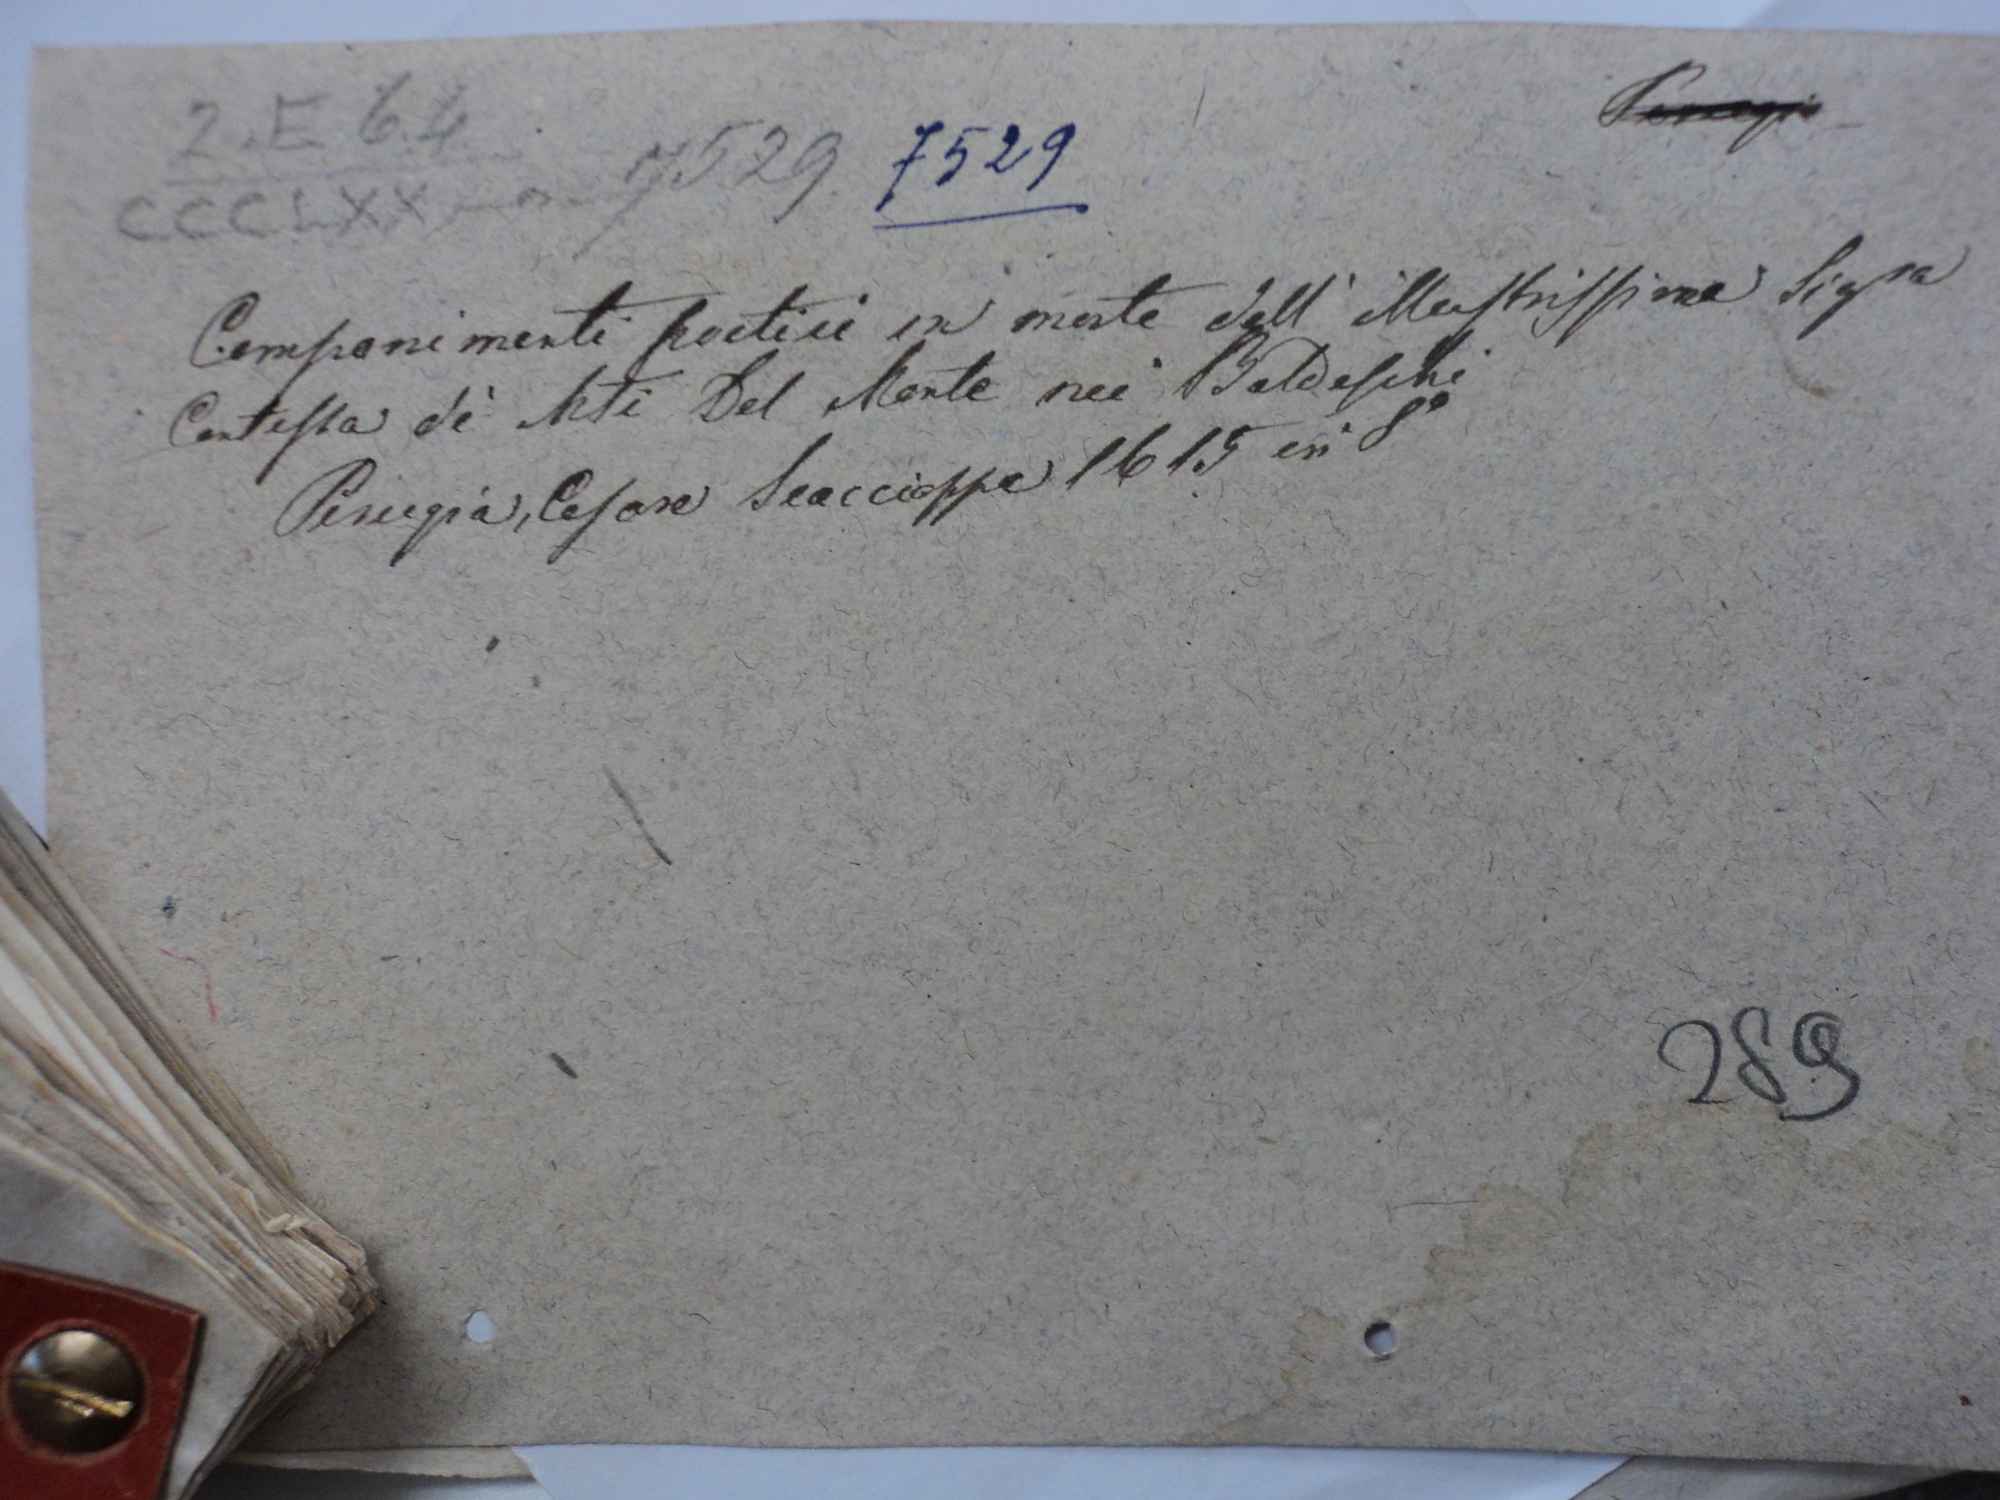 2. E 6.4
CCCLXX 7529 7529
Componimenti poetici in morte dell' illustrissima Sigra
Contessa de' Atti Del Monte nei Baldeschi
Perugia, Cesare Scaccioppa 1615 in 8º
289